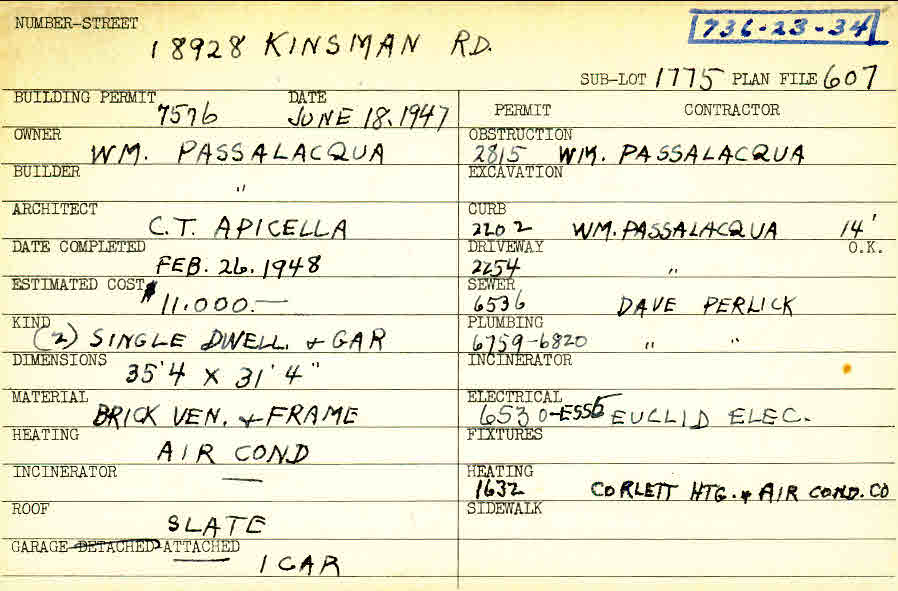 NUMBER-STREET
18928 KINSMAN RD.
736-23-34
SUB-LOT 1775 PLAN FILE 607
BUILDING PERMIT 7576 DATE JUNE 18.1947
OWNER
WM. PASSALACQUA
BUILDER
"
ARCHITECT
C.T. APICELLA
DATE COMPLETED
FEB. 26.1948
ESTIMATED COST
$11.000.—
KIND
(2) SINGLE DWELL. + GAR
DIMENSIONS
35'4 X 31'4"
MATERIAL
BRICK VEN. + FRAME
HEATING
AIR COND
INCINERATOR
—
ROOF
SLATE
GARAGE-DETACHED-ATTACHED
1 CAR
PERMIT CONTRACTOR
OBSTRUCTION
2815 WM. PASSALACQUA
EXCAVATION
CURB
2202 WM. PASSALACQUA 14'
DRIVEWAY O.K.
2254 "
SEWER
6536 DAVE PERLICK
PLUMBING
6759-6820 " "
INCINERATOR
ELECTRICAL
6530-E555 EUCLID ELEC.
FIXTURES
HEATING
1632 CORLETT HTG. + AIR COND. CO
SIDEWALK